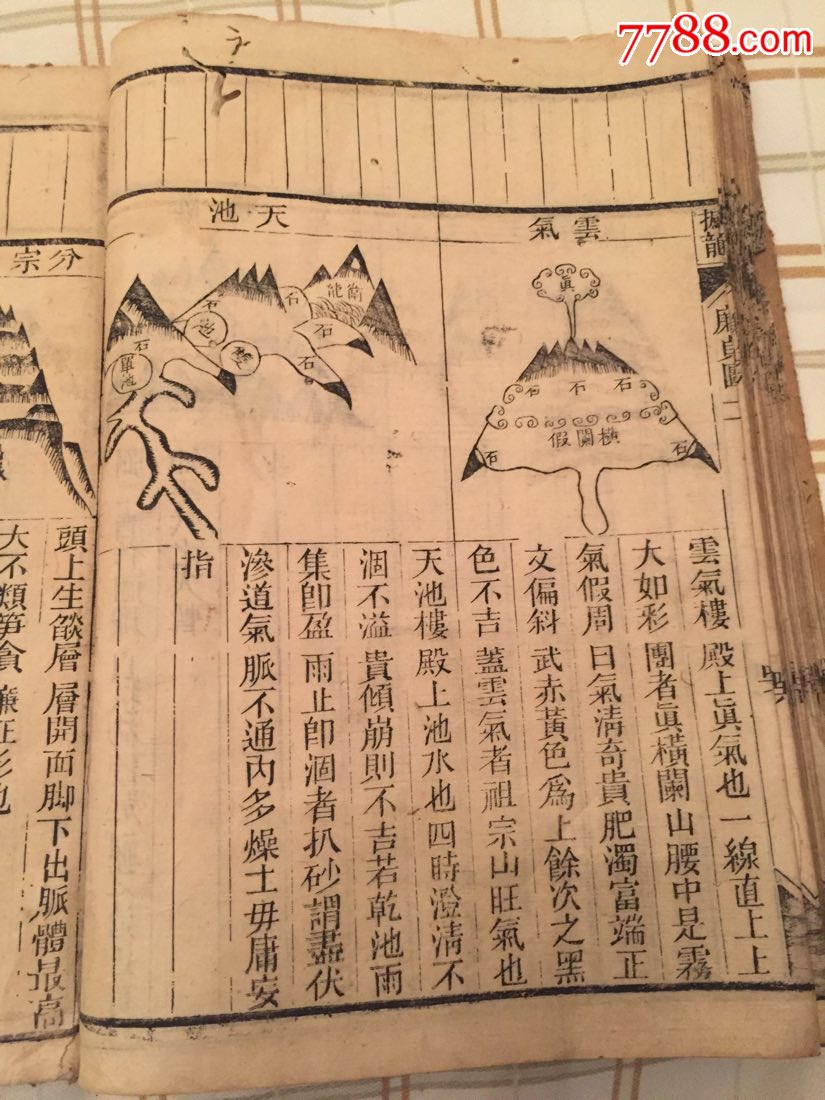 7788.com
撼龍
廉貞圖 二
雲氣
眞
石 石 石
橫闌假
石 石
天池
石
石
石
石
石
雲氣樓殿上眞氣也一線直上上
大如彩團者眞橫闌山腰中是霧
氣假周曰氣清奇貴肥濁富端正
文偏斜武赤黃色爲上餘次之黑
色不吉蓋雲氣者祖宗山旺氣也
天池樓殿上池水也四時澄清不
涸不溢貴傾崩則不吉若乾池雨
集卽盈雨止卽涸者扒砂謂盡伏
滲道氣脈不通內多燥土毋庸妄
指
分宗
頭上生燄層層開面脚下出脈體最高
大不類筍貪廉